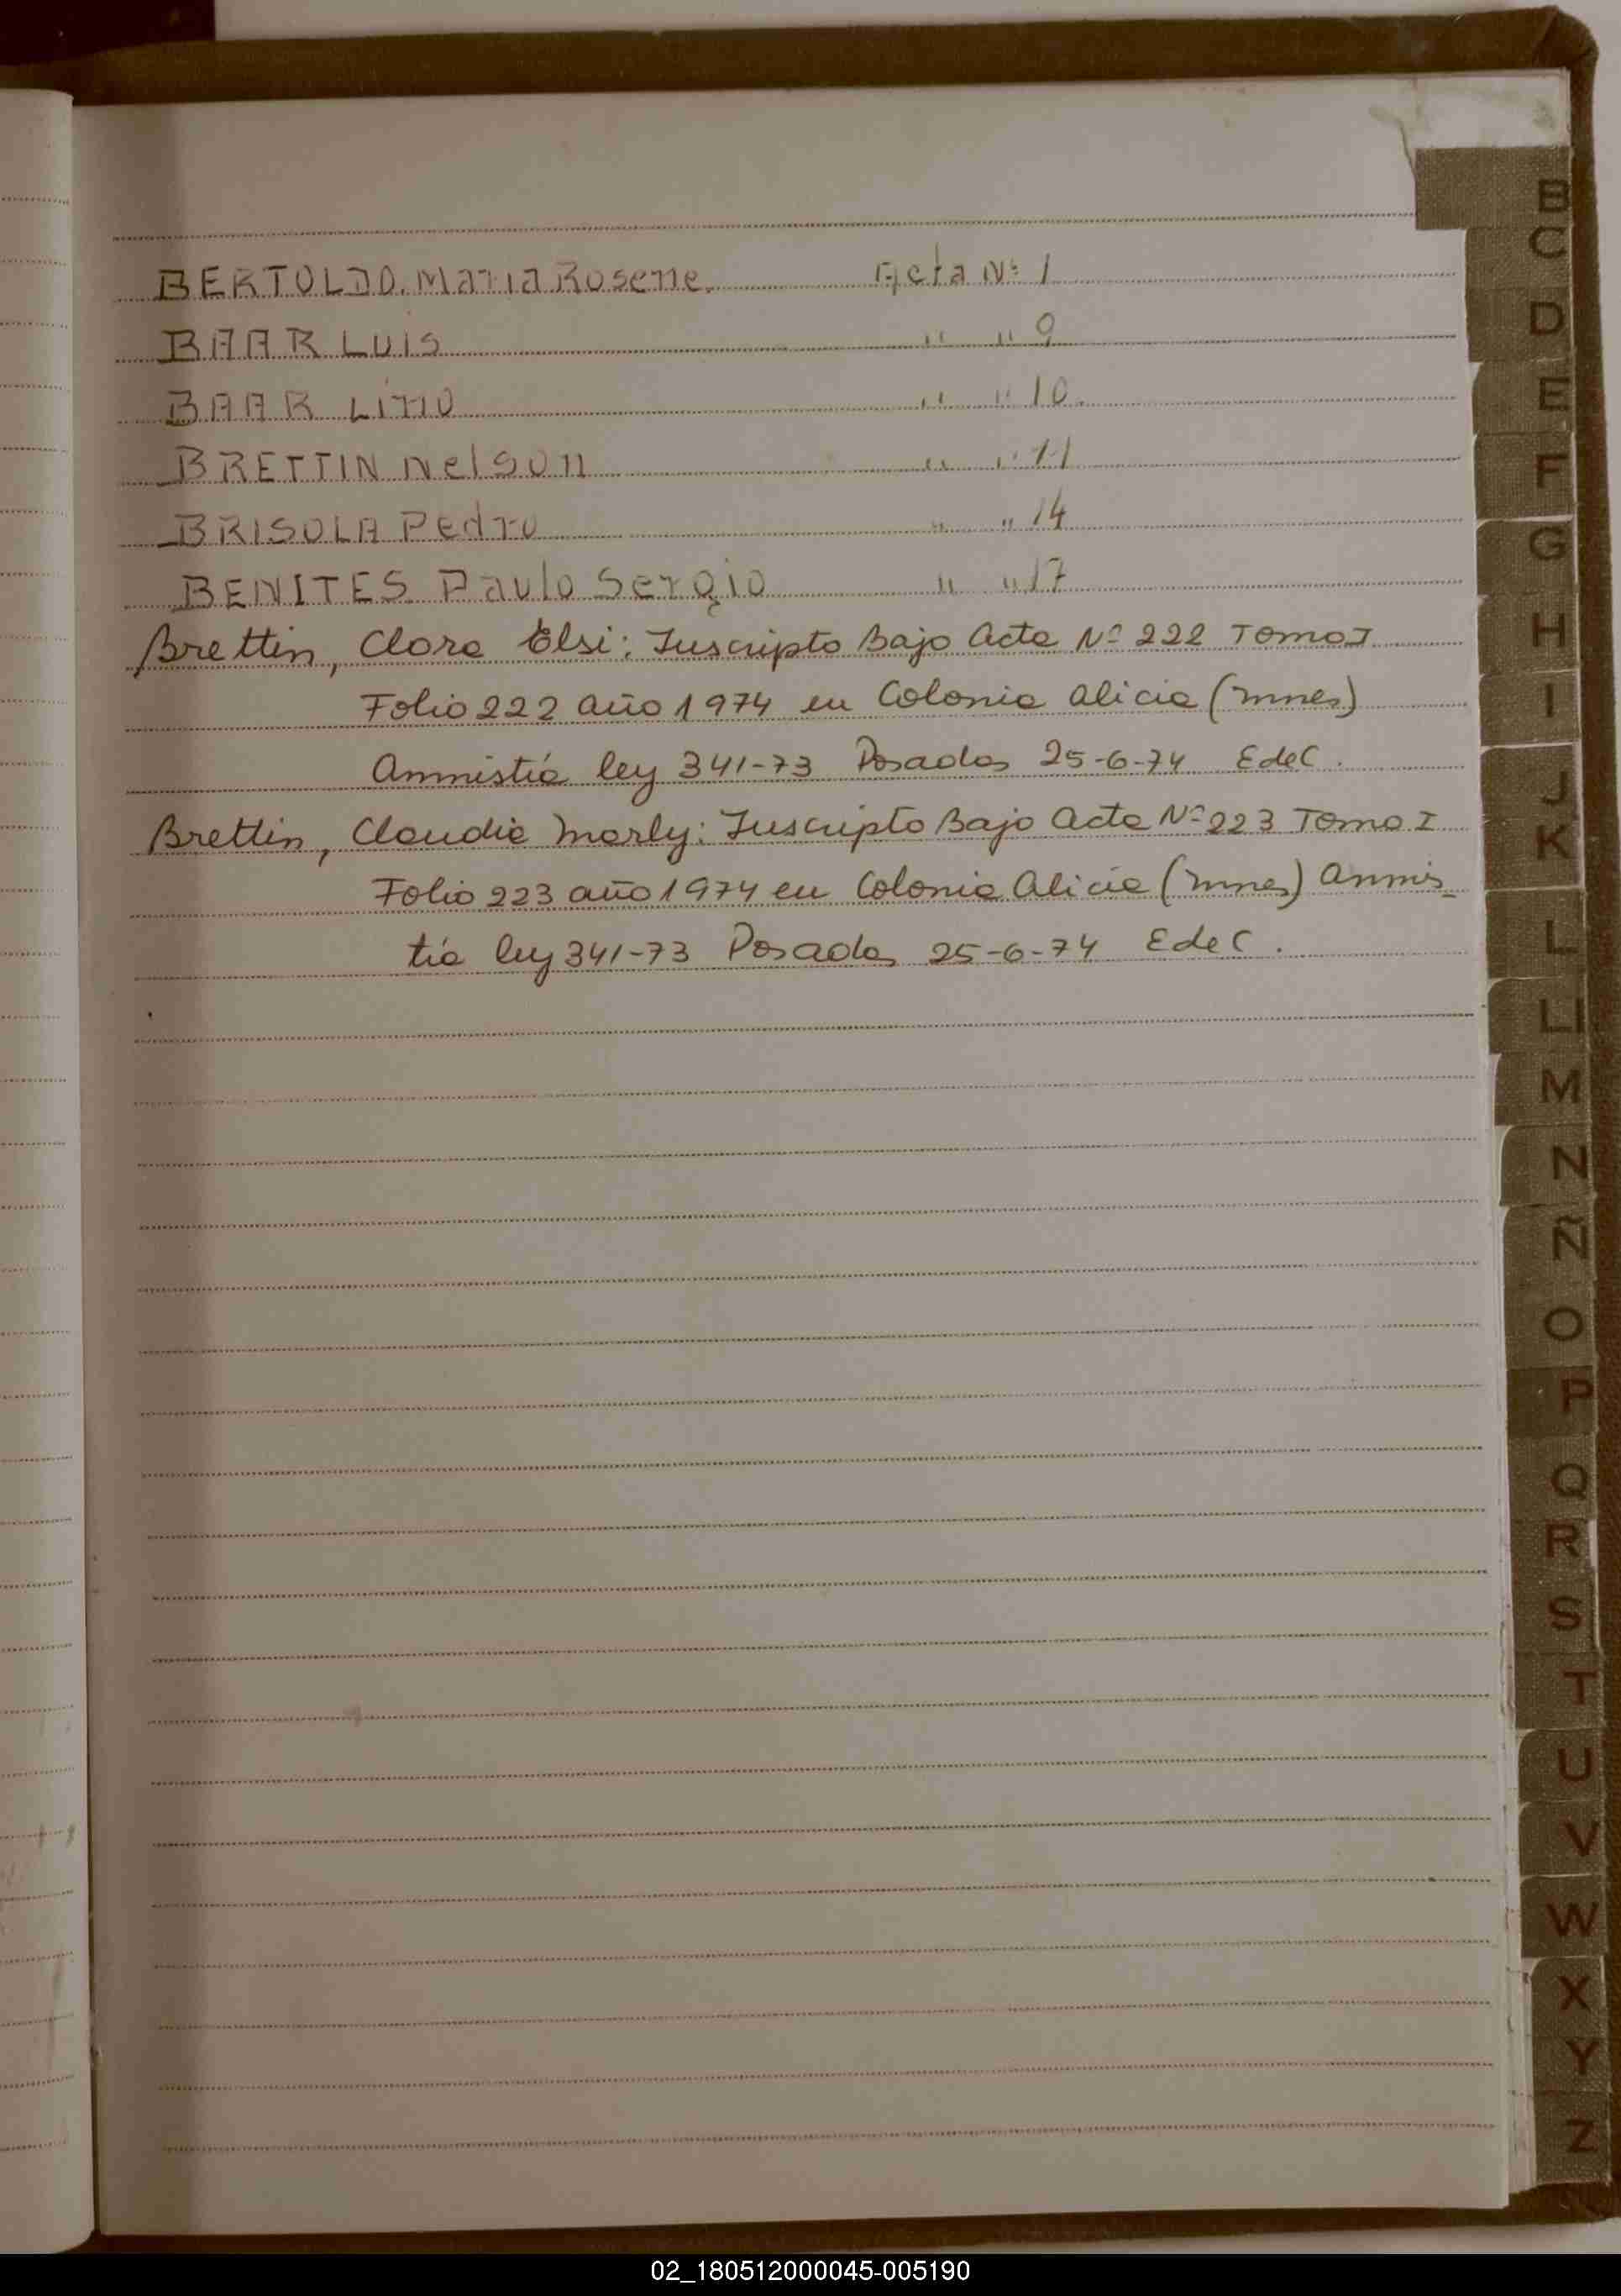 BERTOLDO. Maria Rosene. Acta Nº 1
BAAR LUIS " " 9
BAAR Lirio " " 10.
BRETTIN Nelson " " 11
BRISOLA Pedro " " 14
BENITES Paulo Sergio " " 17
Brettin, Clara Elsi: Inscripto Bajo Acta Nº 222 Tomo I
Folio 222 año 1974 en Colonia Alicia (Mnes)
Amnistía ley 341-73 Posadas 25-6-74 EdeC.
Brettin, Claudia Marly: Inscripto Bajo Acta Nº 223 Tomo I
Folio 223 año 1974 en Colonia Alicia (Mnes) Amnis-
tía ley 341-73 Posadas 25-6-74 EdeC.
B
C
D
E
F
G
H
I
J
K
L
Ll
M
N
Ñ
O
P
Q
R
S
T
U
V
W
X
Y
Z
02_180512000045-005190